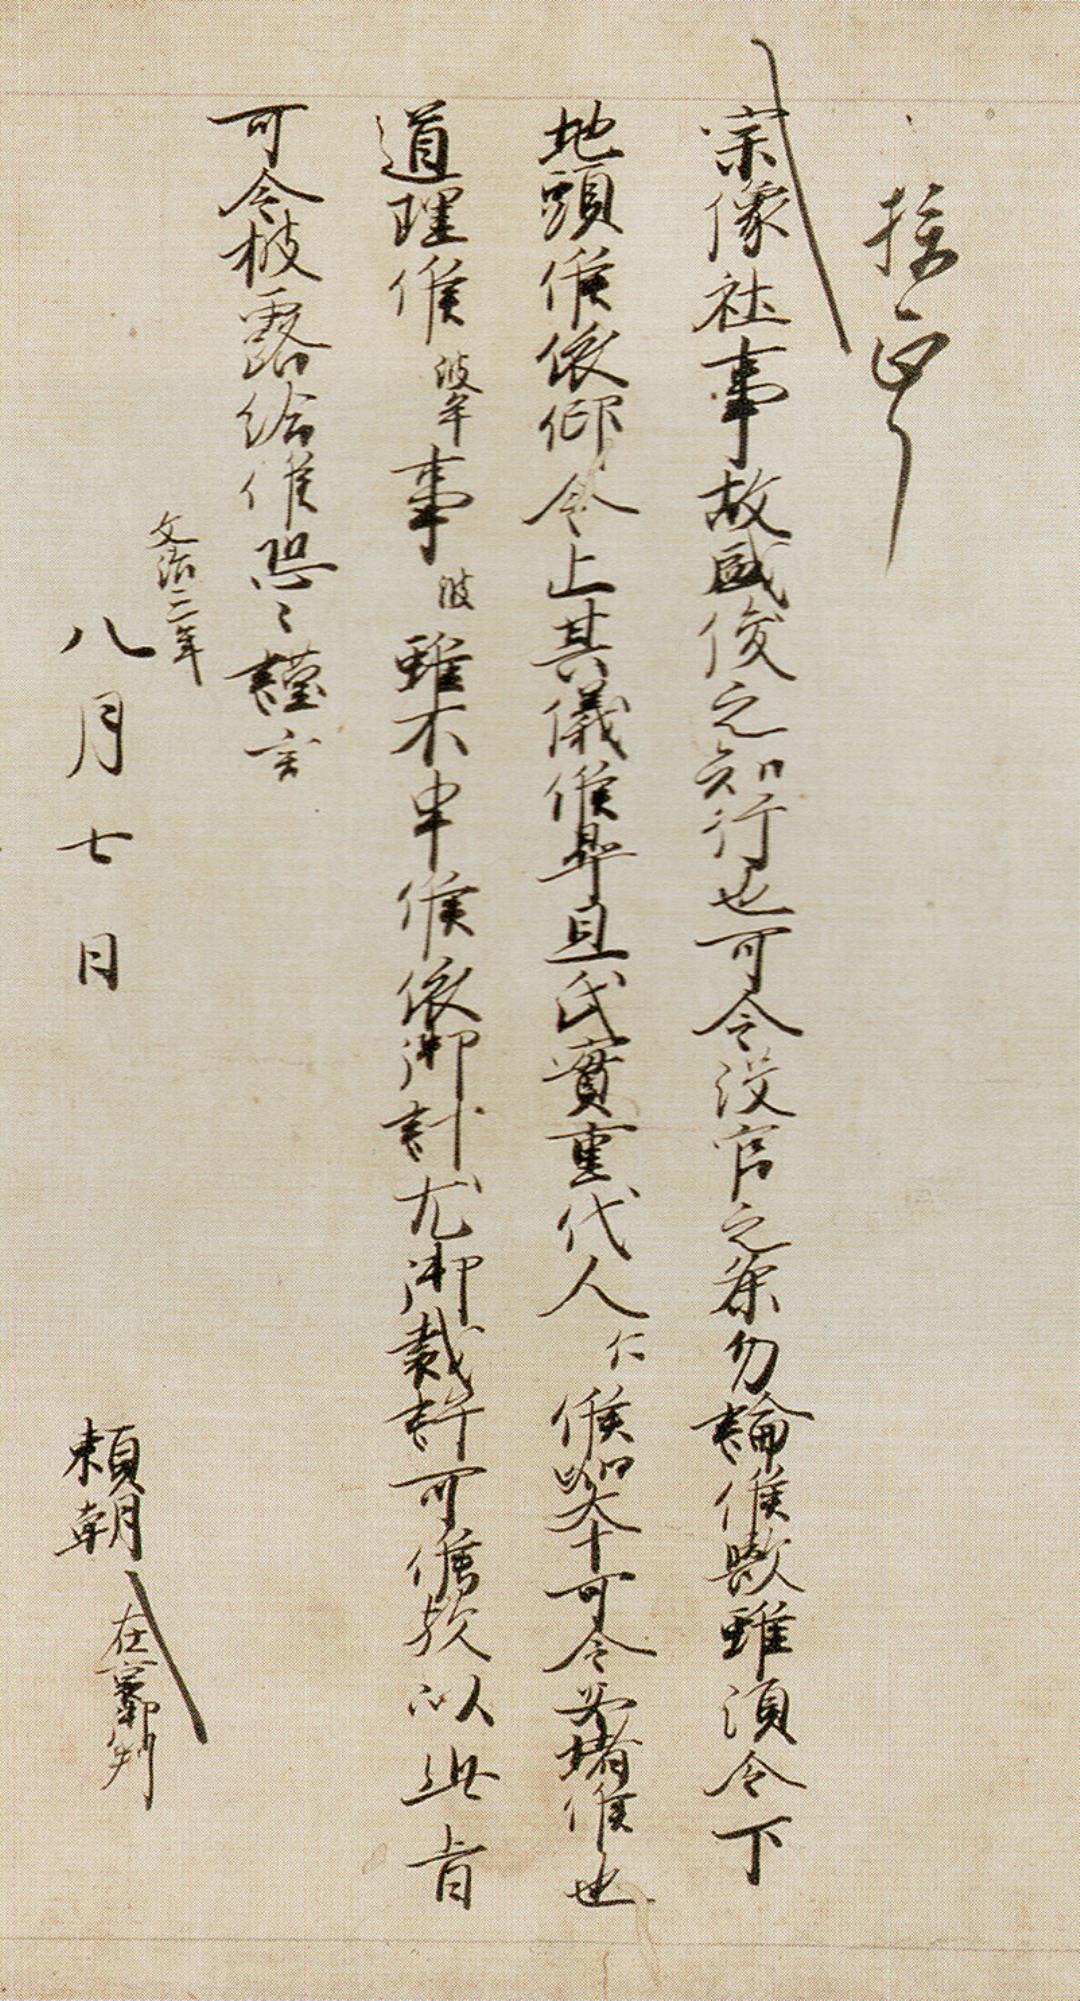 案正
宗像社事故盛俊之知行也可令没官之条勿論候歟雖須令下
地頭候依仰令止其儀候畢且氏實重代人仁候如大可令安堵候也
道理候彼年事彼雖不申候依御計尤御裁許可候歟以此旨
可令披露給候恐々謹言
文治二年
八月七日
頼朝在裏御判